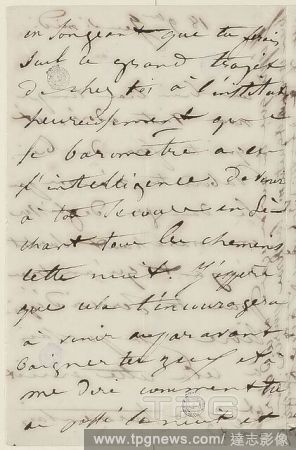 en songeant que tu ferais
seul ce grand trajet
de chez toi à l'institut
heureusement que
le baromètre a eu
l'intelligence de venir
à ton secours en sé
chant tous les chemins
cette nuit. J'espère
que cela t'encouragera
à venir auparavant
baigner tes yeux et à
me dire comment tu
as passé la nuit et
TPG
www.tpgnews.com / 達志影像